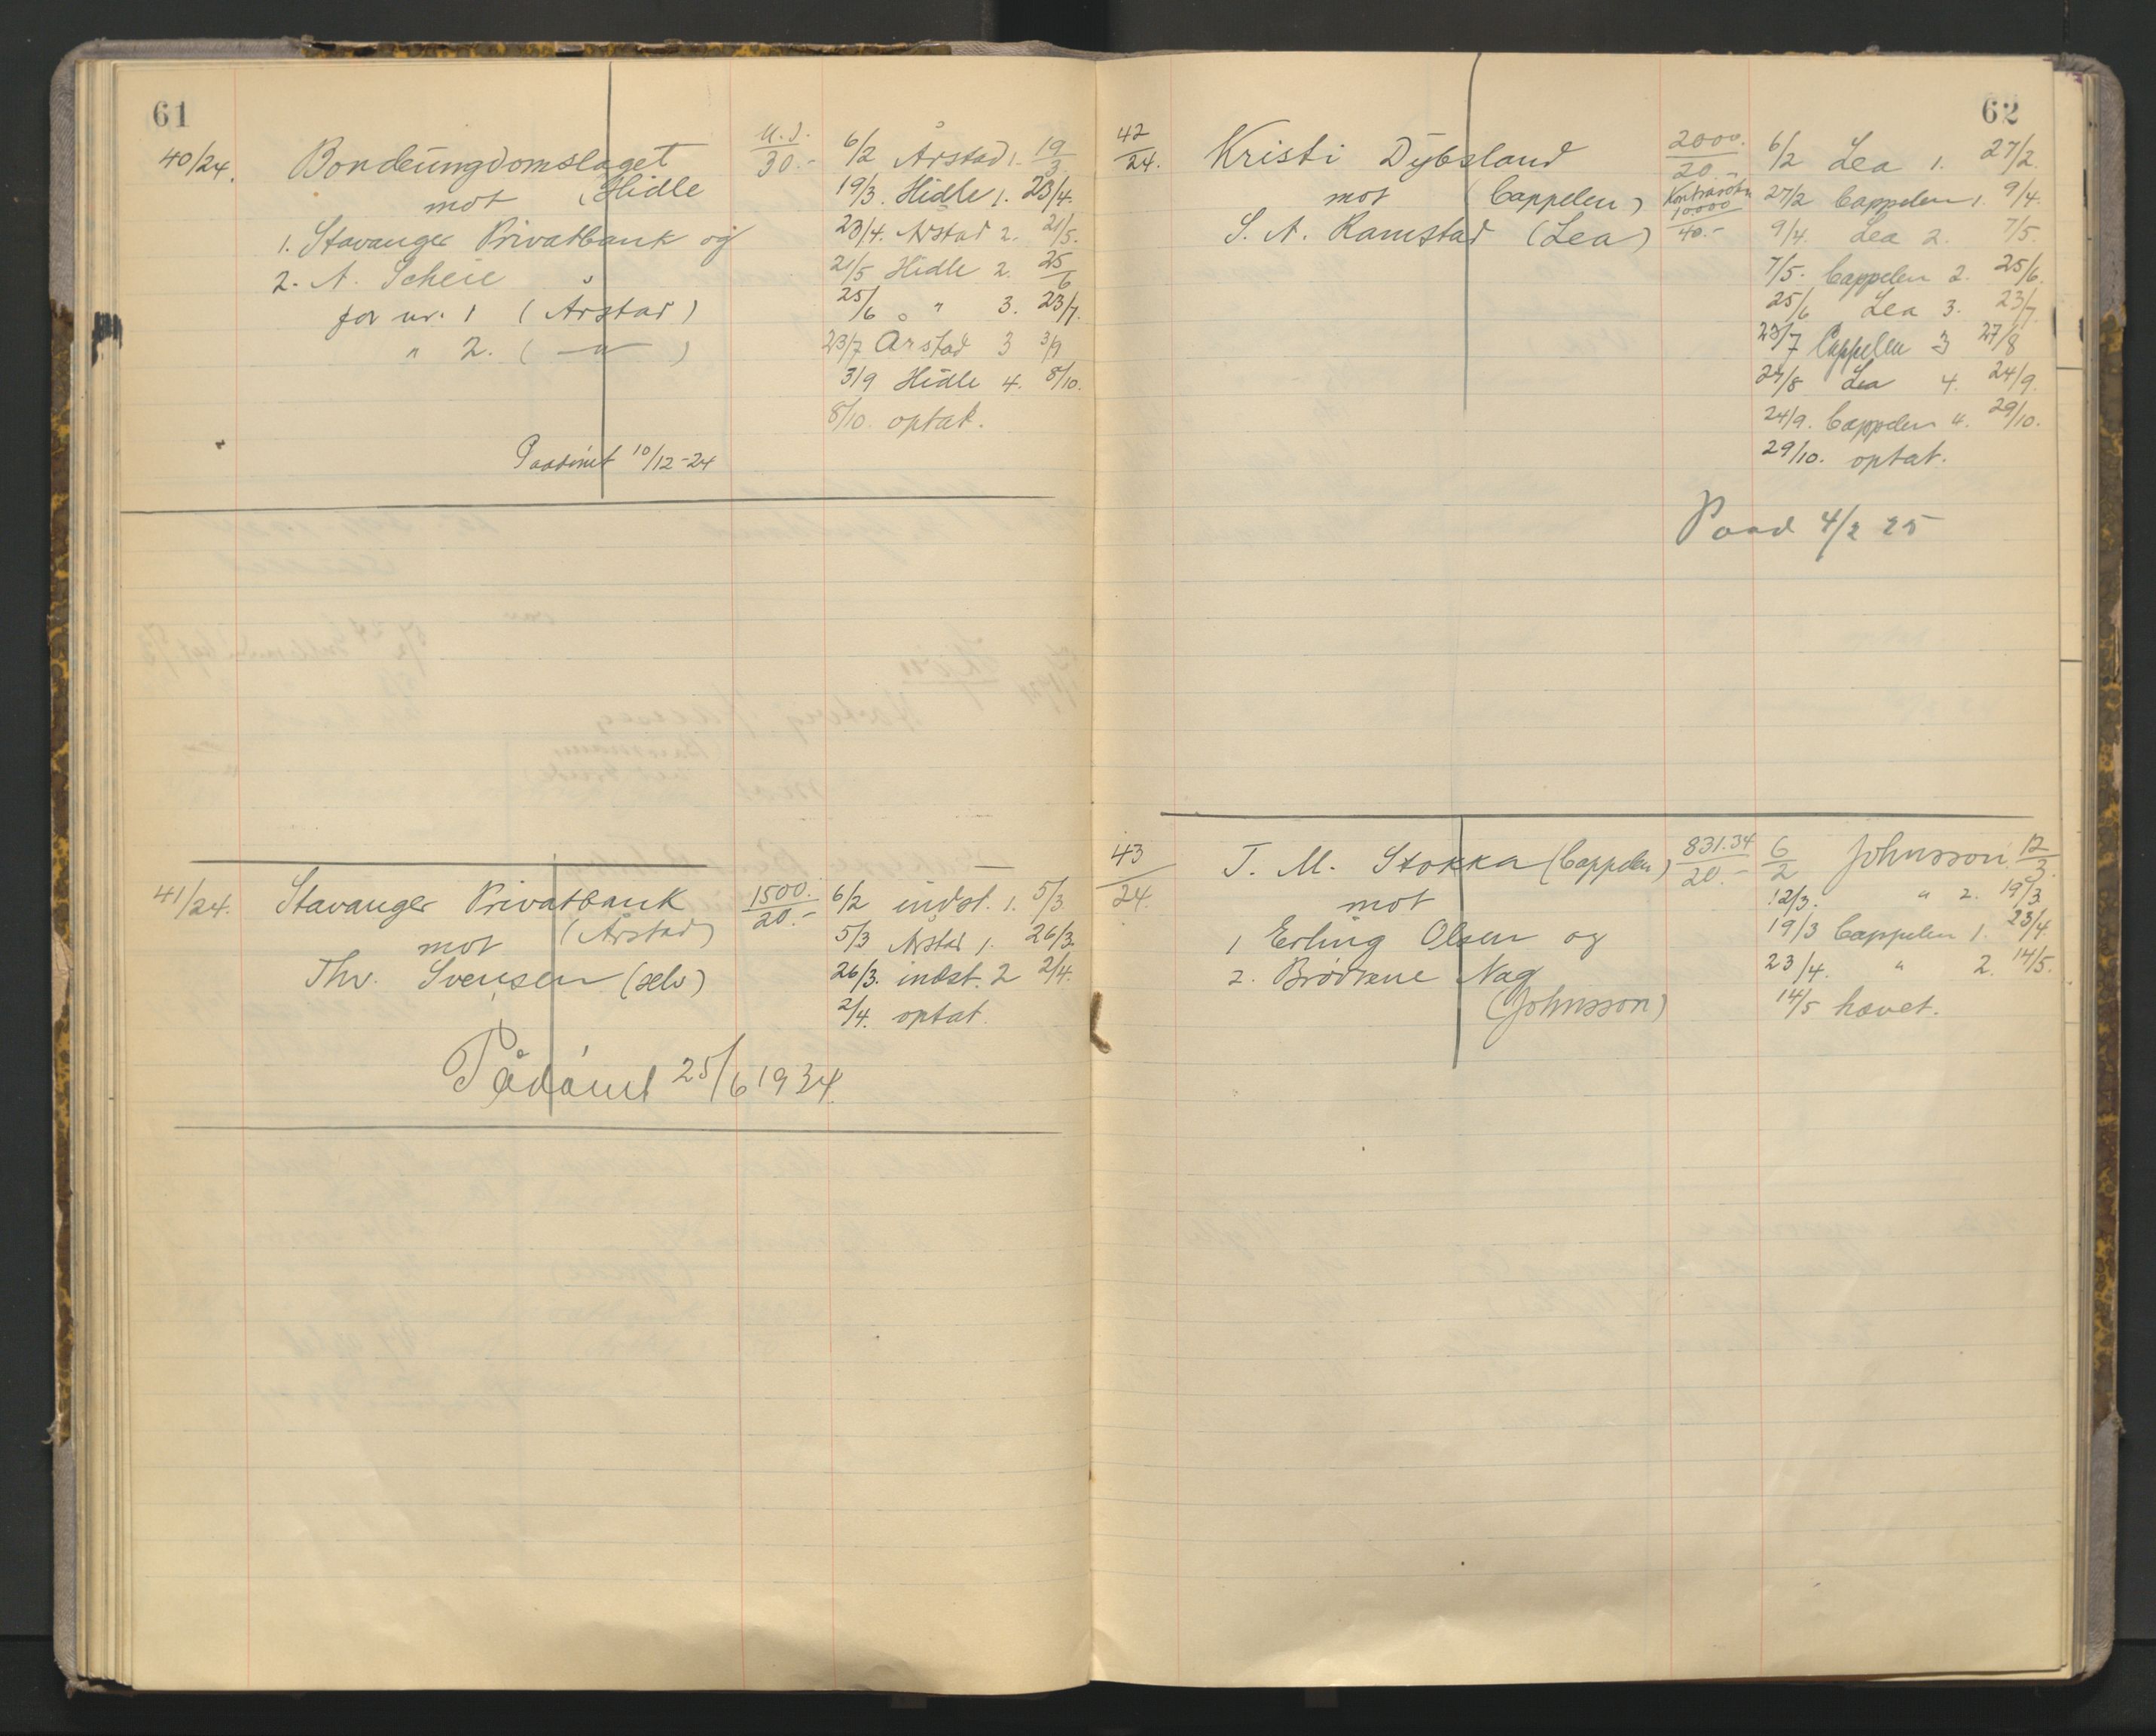 61
40/24. Bondeungdomslaget U.S. 30.- 6/2 Årstad 1. 19/3
mot (Hidle 19/3. Hidle 1. 23/4.
1. Stavanger Privatbank og 23/4. Årstad 2. 21/5.
2. A. Scheie 21/5 Hidle 2. 25/6
for nr. 1 (Årstad) 25/6 " 3. 23/7.
" 2. ( —"— ) 23/7 Årstad 3 3/9
3/9 Hidle 4. 8/10.
8/10. optat.
Paadömt 10/12-24
41/24. Stavanger Privatbank 1500.- 20.- 6/2 indst. 1. 5/3
mot (Årstad) 5/3 Årstad 1. 26/3.
Thv. Svensen (selv) 26/3. indst. 2 2/4.
2/4. optat.
Pådömt 25/6 1934.
62
42/24. Kristi Dybsland 2000.- 20.- 6/2 Lea 1. 27/2.
mot (Cappelen) 10.000 27/2 Cappelen 1. 9/4.
S. A. Ramstad (Lea) 40.- 9/4. Lea 2. 7/5.
7/5. Cappelen 2. 25/6.
25/6 Lea 3. 23/7.
23/7 Cappelen 3 27/8
27/8 Lea 4. 24/9.
24/9. Cappelen 4. 29/10.
29/10. optat.
Paad 4/2 25
43/24. T. M. Stokka (Cappelen) 831.34 20.- 6/2 Johnsson 12/3.
mot 12/3. " 2. 19/3
1 Erling Olsen og 19/3 Cappelen 1. 23/4.
2. Brödrene Nag 23/4. " 2. 14/5.
(Johnsson) 14/5 hævet.